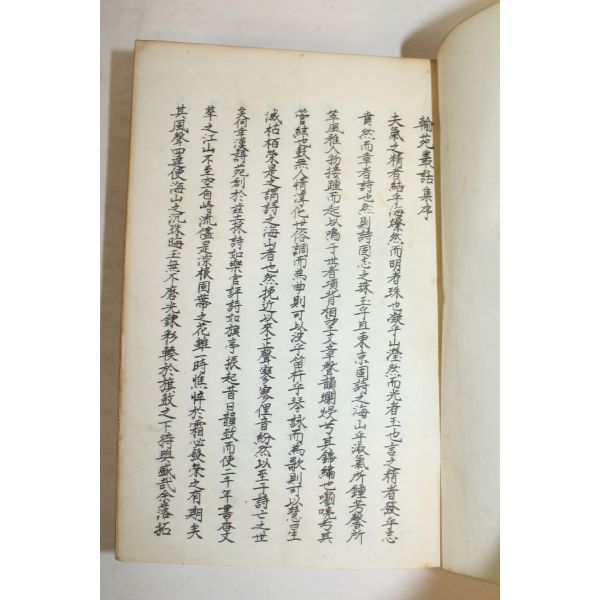 翰苑叢話集序
夫氣之精者結乎海燦然而明者珠也凝乎山瀅然而光者玉也言之精者發乎志
賁然而章者詩也然則詩固志之珠玉乎且東京固詩之海山乎淑氣所鍾芳馨所
萃風雅人物接踵而起以鳴于世者項背相望文章聲韻爛熳兮其錦繡也嚠喨兮其
管絃也鼓無人情淳化世俗調而為曲則可以波乎笛杵乎琴詠而為歌則可以慧星
滅枯栢榮是之謂詩之海山者也然挽近以來正聲寥寥俚音紛然以至于詩亡之世
矣何幸漢詩苑創於玆採詩如樂官評詩如旗亭振起昔日韻致而使二千年書香文
萃之江山不至空向峙流儘是深根固蔕之花雖一時憔悴於霜必發榮之有期矣
其風聲四達使海山之沉珠晦玉無不磨光鍊彩輳於旗鼓之下猗與盛哉余落拓